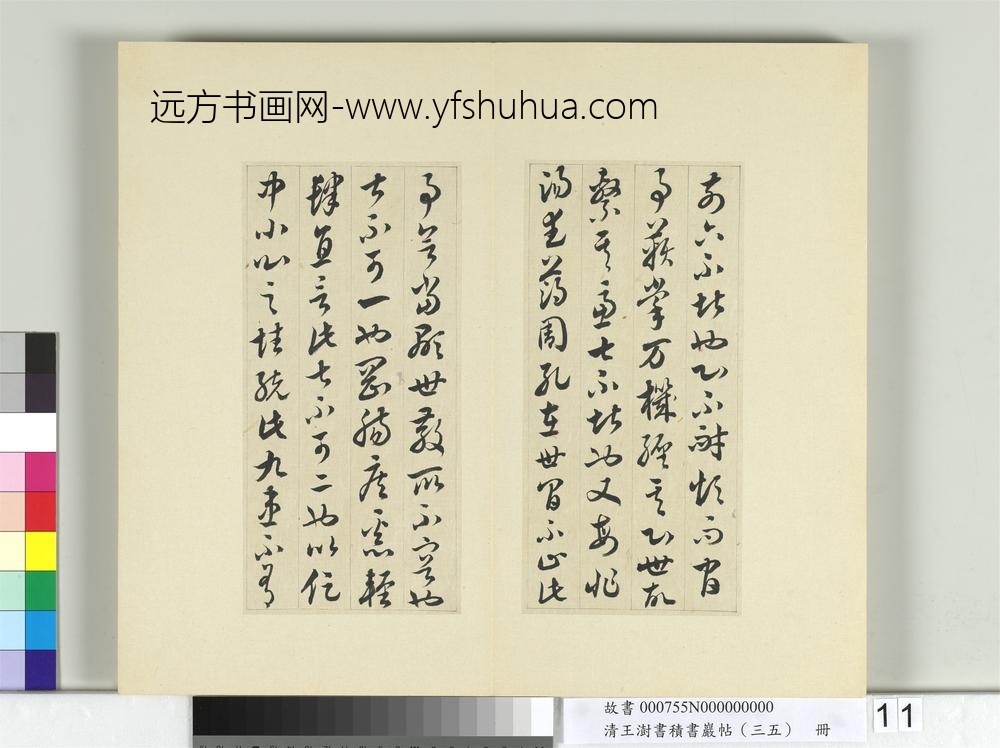 远方书画网-www.yfshuhua.com
前六不堪也心不耐煩而官
事鞅掌万機纏其心世故
繁其慮七不堪也又每非
湯武薄周孔在世間不止此
事會當顯世教所不容也
甚不可一也剛腸疾惡輕
肆直言此甚不可二也以促
中小心之性統此九患不有
故書 000755N000000000
清王澍書積書巖帖（三五） 冊
11